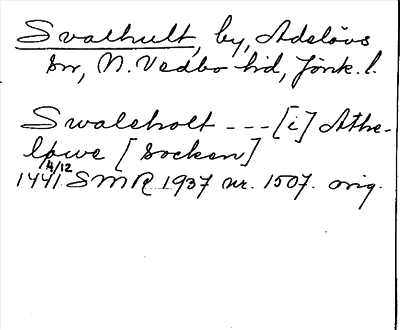 Svalhult, by, Adelövs
sn, N. Vedbo hd, Jönk. l.
Swaleholt --- [i] Athe-
løwe [socken]
1441 4/12 SMR 1937 nr. 1507. orig.